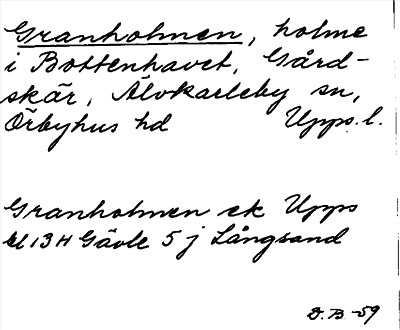 Granholmen, holme
i Bottenhavet, Gård-
skär, Älvkarleby sn,
Örbyhus hd Upps. l.
Granholmen ek Upps
bl 13 H Gävle 5 j Långsand
D. B -59